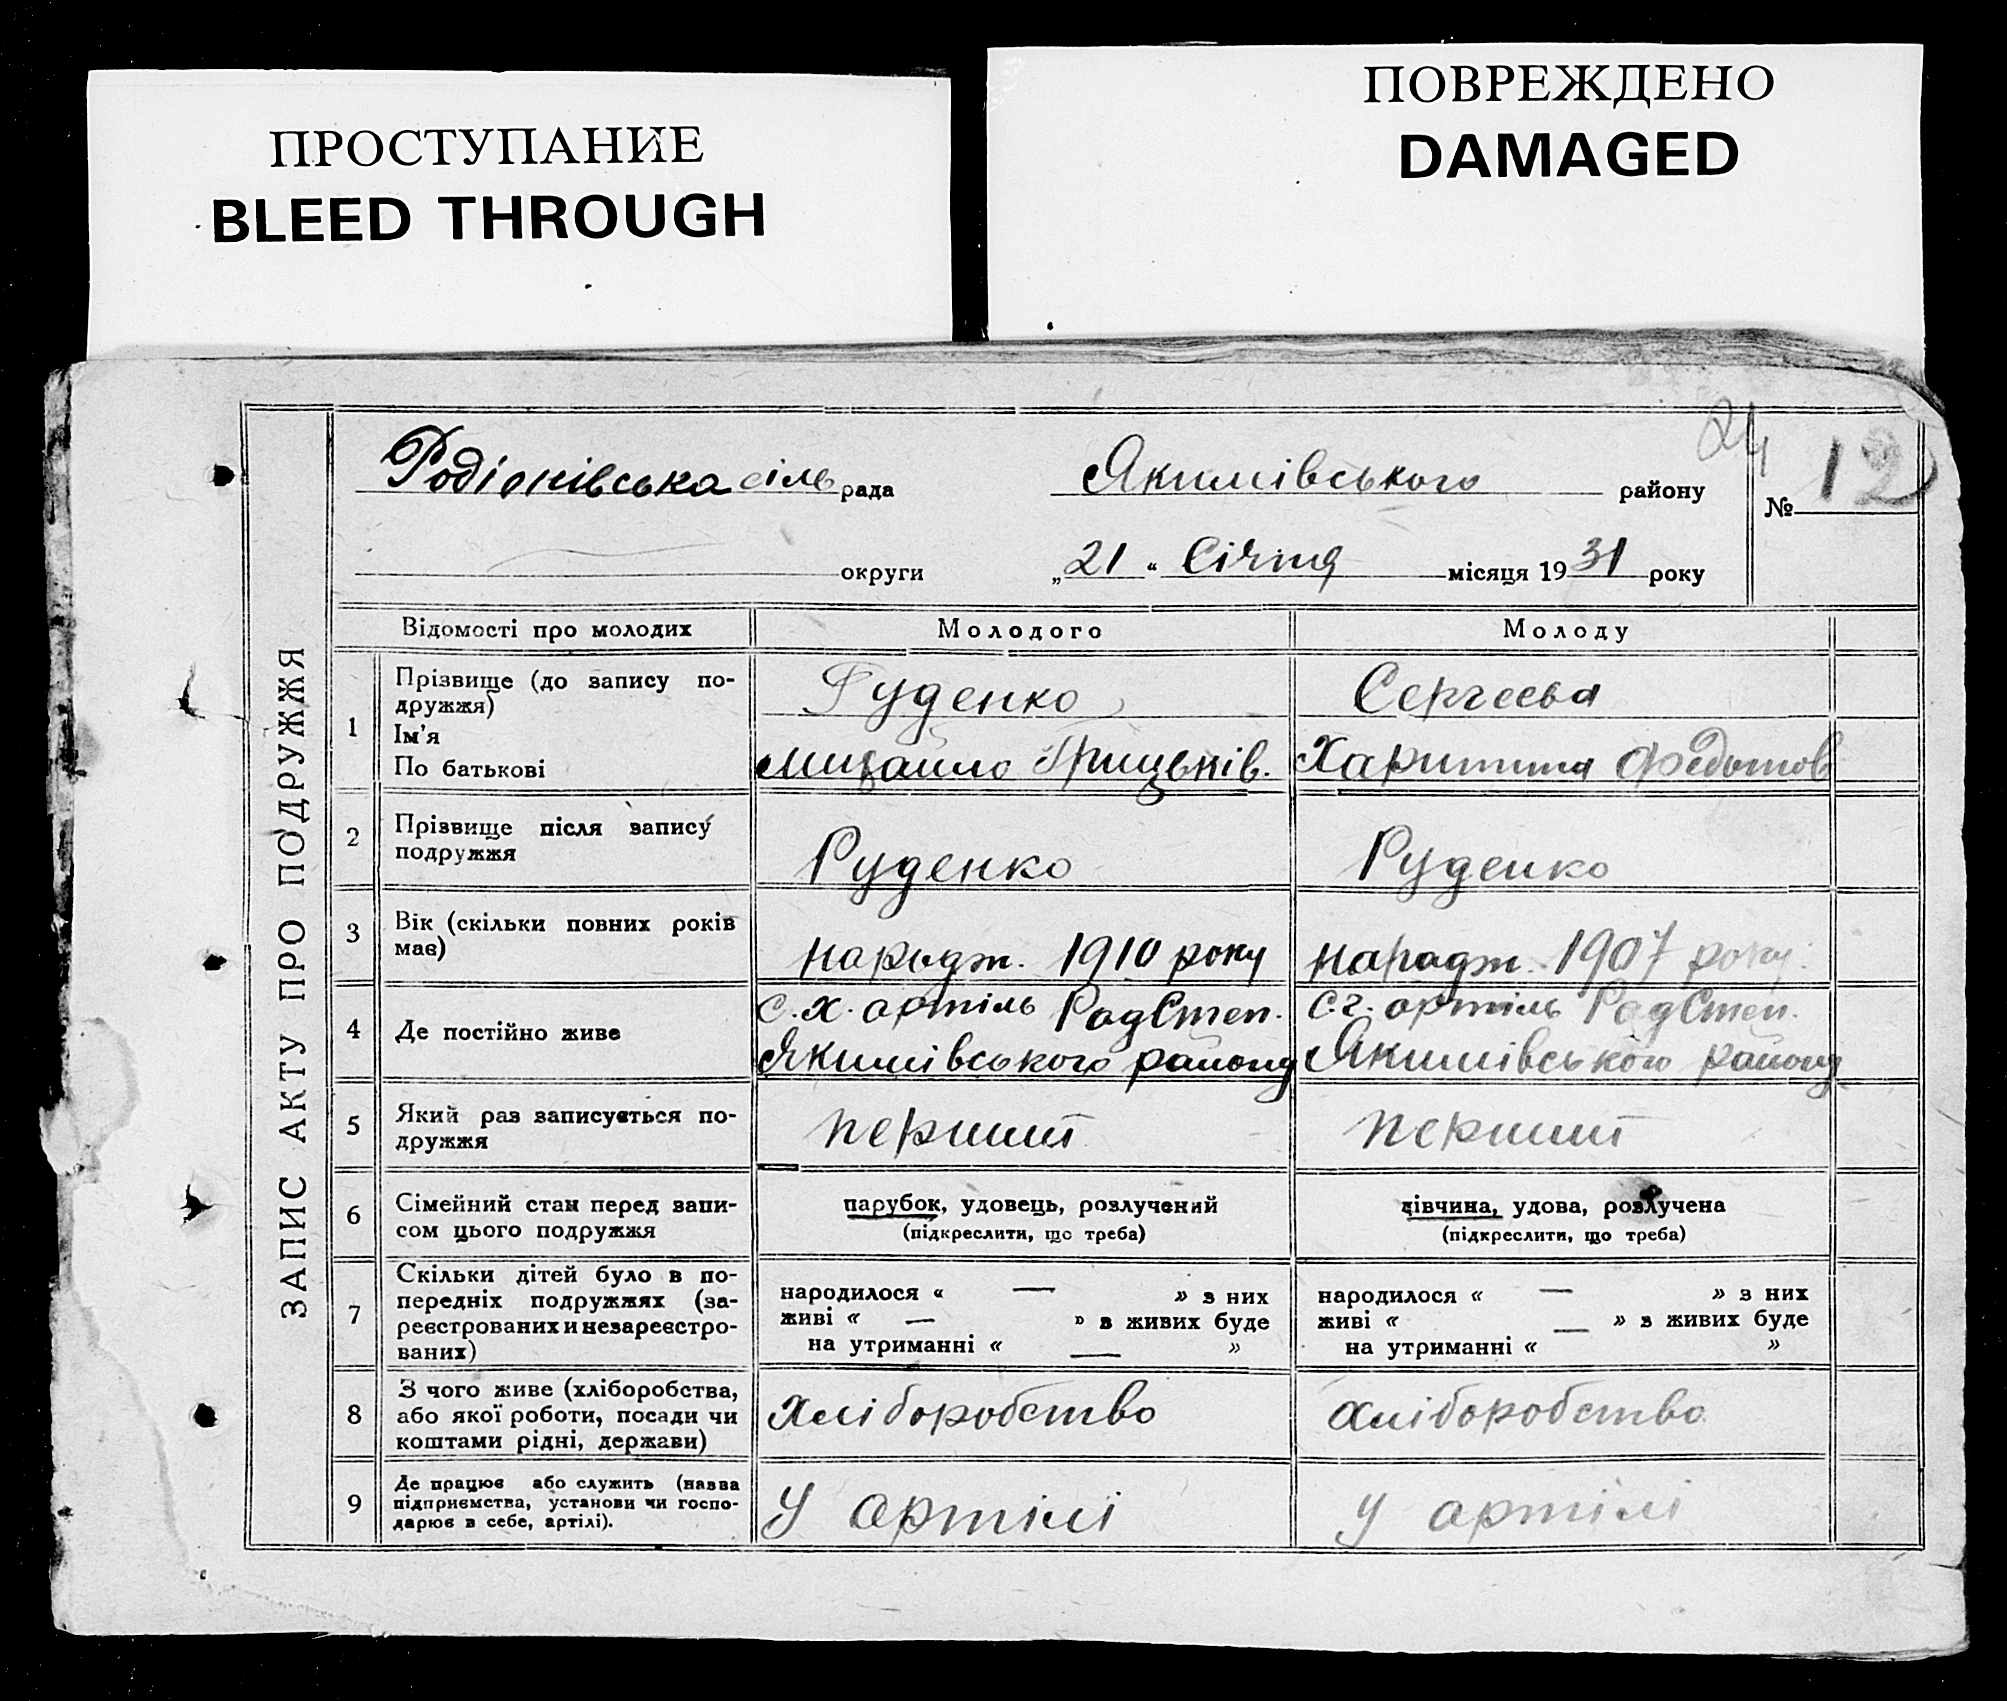 ПРОСТУПАНИЕ
BLEED THROUGH
ПОВРЕЖДЕНО
DAMAGED
24
Родіонівська сіль рада Якимівського району № 12
округи „21“ Січня місяця 1931 року
ЗАПИС АКТУ ПРО ПОДРУЖЖЯ
Відомості про молодих Молодого Молоду
1 Прізвище (до запису по-
дружжя)
Ім'я
По батькові
Руденко
Михайло Грицьків.
Сергеева
Харитина Федотов
2 Прізвище після запису
подружжя
Руденко
Руденко
3 Вік (скільки повних років
має)
народж. 1910 року
народж. 1907 року.
4 Де постійно живе
с.х. артіль РадСтеп.
Якимівського району
с.г. артіль РадСтеп.
Якимівського району
5 Який раз записується по-
дружжя
перший
перший
6 Сімейний стан перед запи-
сом цього подружжя
парубок, удовець, розлучений
(підкреслити, що треба)
дівчина, удова, розлучена
(підкреслити, що треба)
7 Скільки дітей було в по-
передніх подружжях (за-
реєстрованих и незареєстро-
ваних)
народилося « — » з них
живі « — » з живих буде
на утриманні « — »
народилося « — » з них
живі « — » з живих буде
на утриманні « »
8 З чого живе (хліборобства,
або якої роботи, посади чи
коштами рідні, держави)
хліборобство
хліборобство
9 Де працює або служить (назва
підприємства, установи чи госпо-
дарює в себе, артілі).
У артілі
У артілі